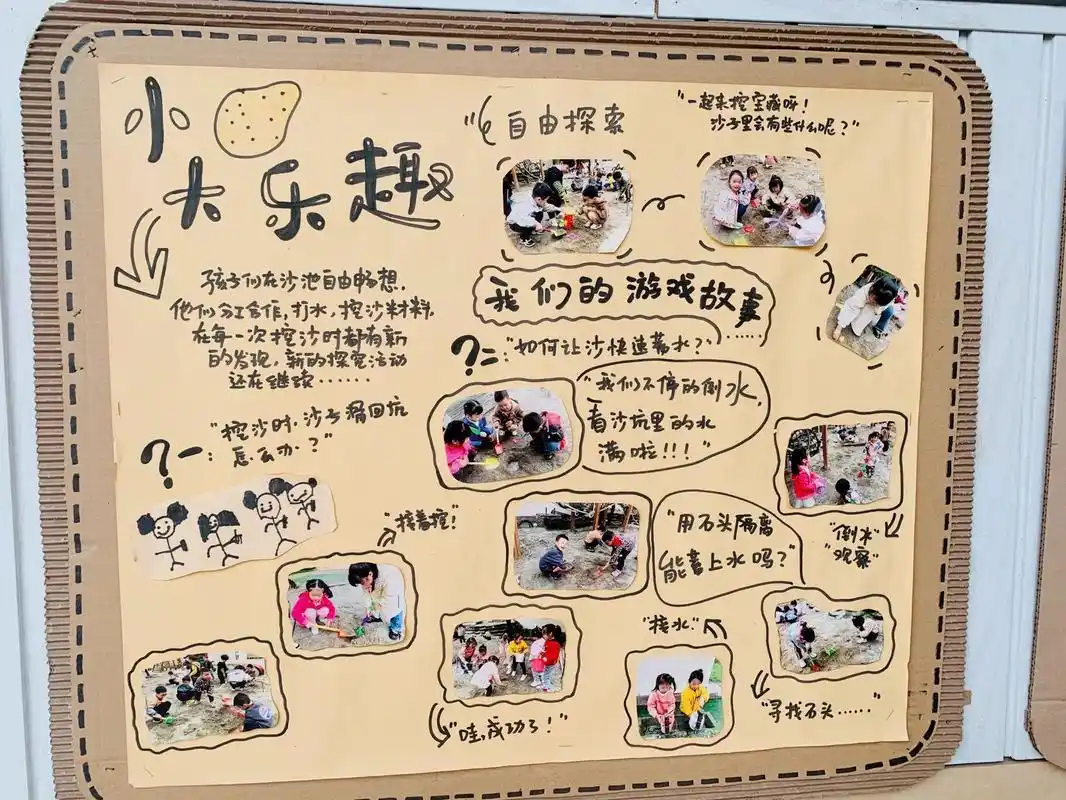 小
大乐趣
孩子们在沙池自由畅想,
他们分工合作,打水,挖沙材料.
在每一次挖沙时都有新
的发现,新的探究活动
还在继续······
?一:
"挖沙时,沙子滑回坑
怎么办?"
"接着挖!"
自由探索
"一起来挖宝藏呀!
沙子里会有些什么呢?"
我们的游戏故事
?二:"如何让沙快速蓄水?"······
"我们不停的倒水,
看沙坑里的水
满啦!!!"
"倒水"
"观察"
"用石头隔离
能蓄上水吗?"
"接水."
"寻找石头······"
"哇,成功了!"